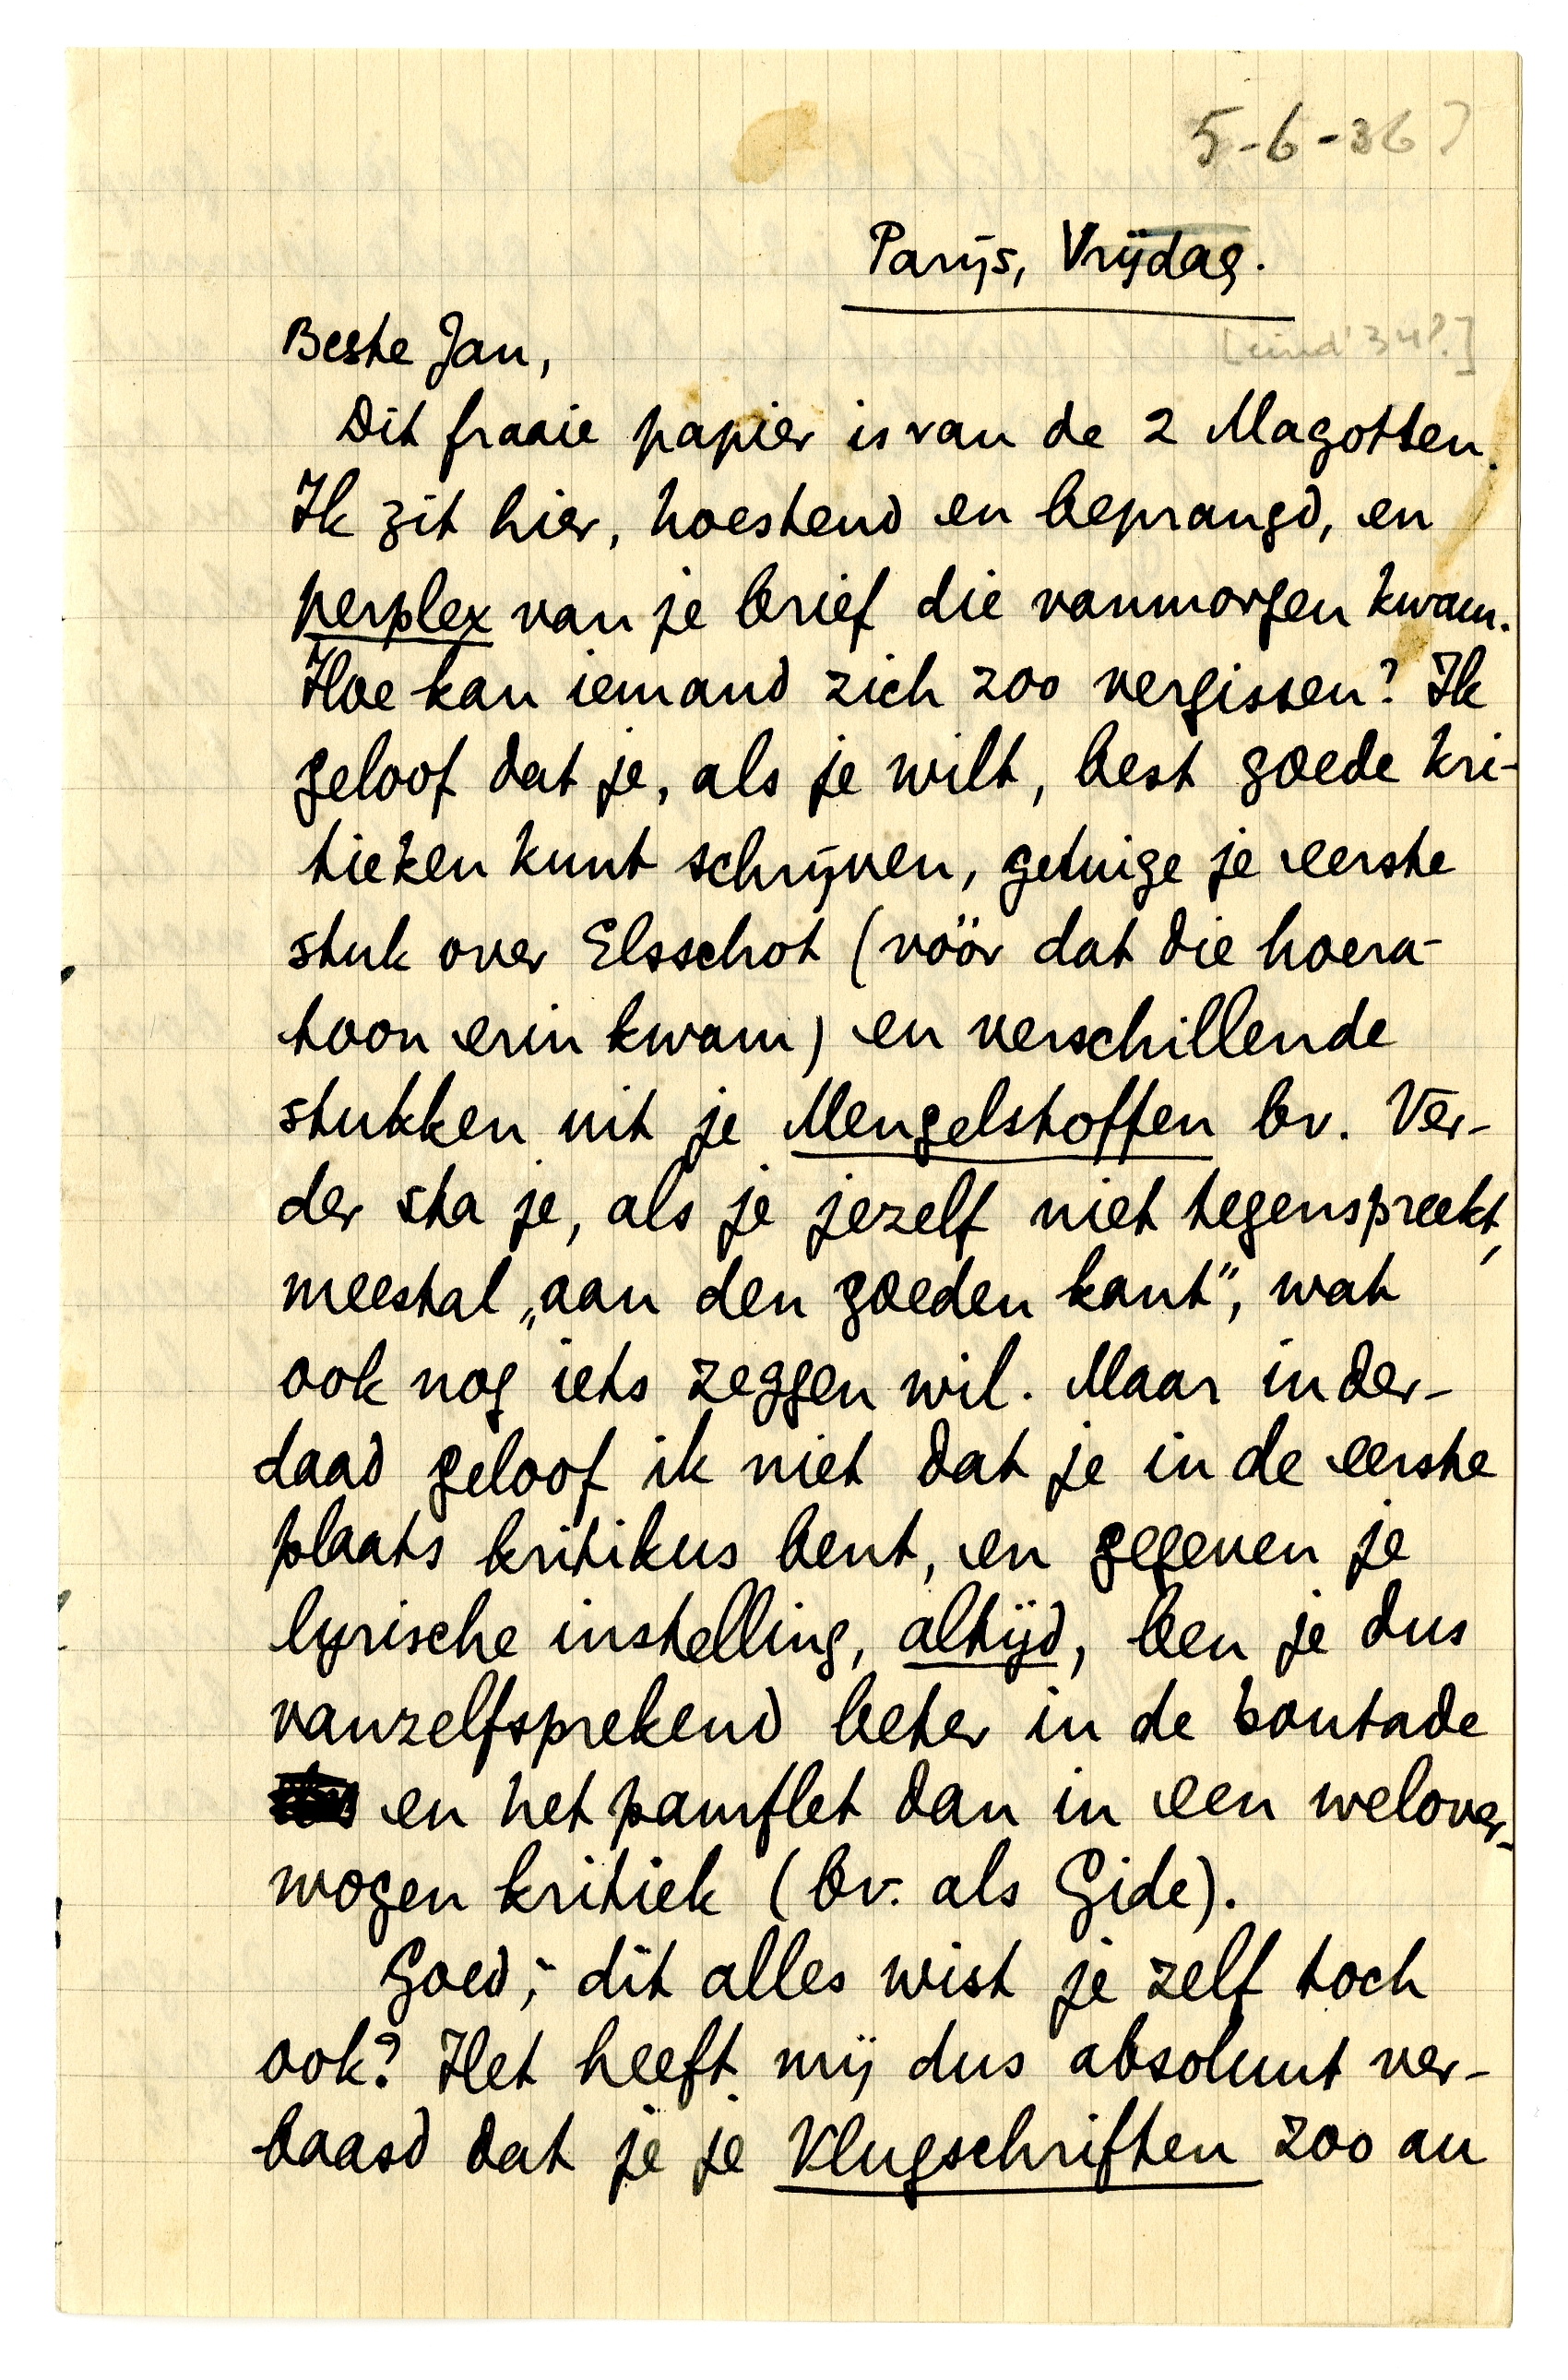 5-6-36?
Parijs, Vrijdag.
[eind '34?]
Beste Jan,
Dit fraaie papier is van de 2 Magotten.
Ik zit hier, hoestend en beprangd, en
perplex van je brief die vanmorgen kwam.
Hoe kan iemand zich zoo vergissen? Ik
geloof dat je, als je wilt, best goede kri-
tieken kunt schrijven, getuige je eerste
stuk over Elsschot (vóór dat die hoera-
toon erin kwam) en verschillende
stukken uit je Mengelstoffen bv. Ver-
der sta je, als je jezelf niet tegenspreekt,
meestal „aan den goeden kant”, wat
ook nog iets zeggen wil. Maar inder-
daad geloof ik niet dat je in de eerste
plaats kritikus bent, en gegeven je
lyrische instelling, altijd, ben je dus
vanzelfsprekend beter in de boutade
en het pamflet dan in een welover-
wogen kritiek (bv. als Gide).
Goed; dit alles wist je zelf toch
ook? Het heeft mij dus absoluut ver-
baasd dat je je Vlugschriften zoo au